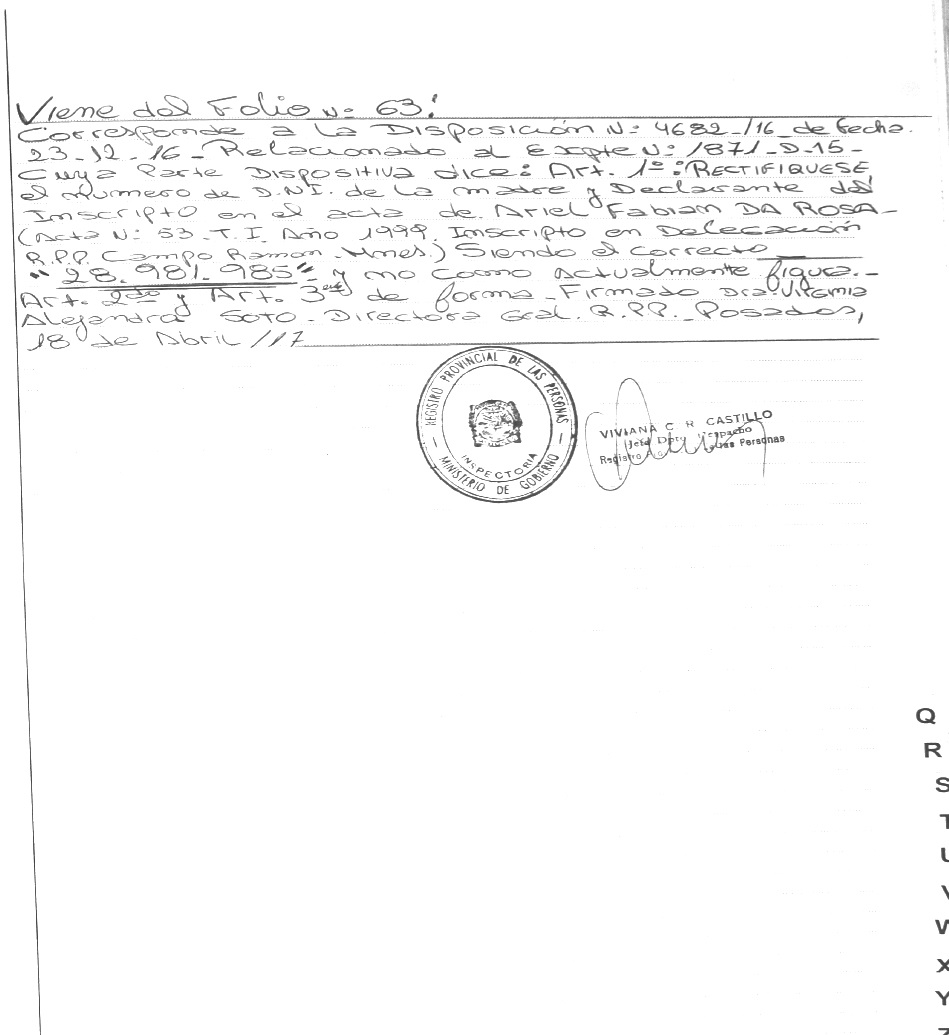 Viene del Folio N: 63:
Corresponde a La Disposición N: 4682-/16 de fecha.
23-12-16 - Relacionado al Expte N: 1871-D-15-
Cuya Parte Dispositiva dice: Art. 1º: RECTIFIQUESE
el número de D.N.I. de la madre y Declarante del
Inscripto en el acta de Ariel Fabian DA ROSA-
(Acta N: 53-T.I. Año 1999. Inscripto en Delegación
R.P.P. Campo Ramon. Mnes.) Siendo el correcto
"28.981.985" y no como actualmente figura.-
Art. 2do y Art. 3ero de forma - Firmado Dra. Virginia
Alejandra Soto - Directora Gral. R.P.P. - Posadas,
18 de Abril /17
REGISTRO PROVINCIAL DE LAS PERSONAS
INSPECTORIA
MINISTERIO DE GOBIERNO
VIVIANA C R CASTILLO
Jefa Dpto Despacho
Registro las Personas
Q
R
S
T
U
V
W
X
Y
Z